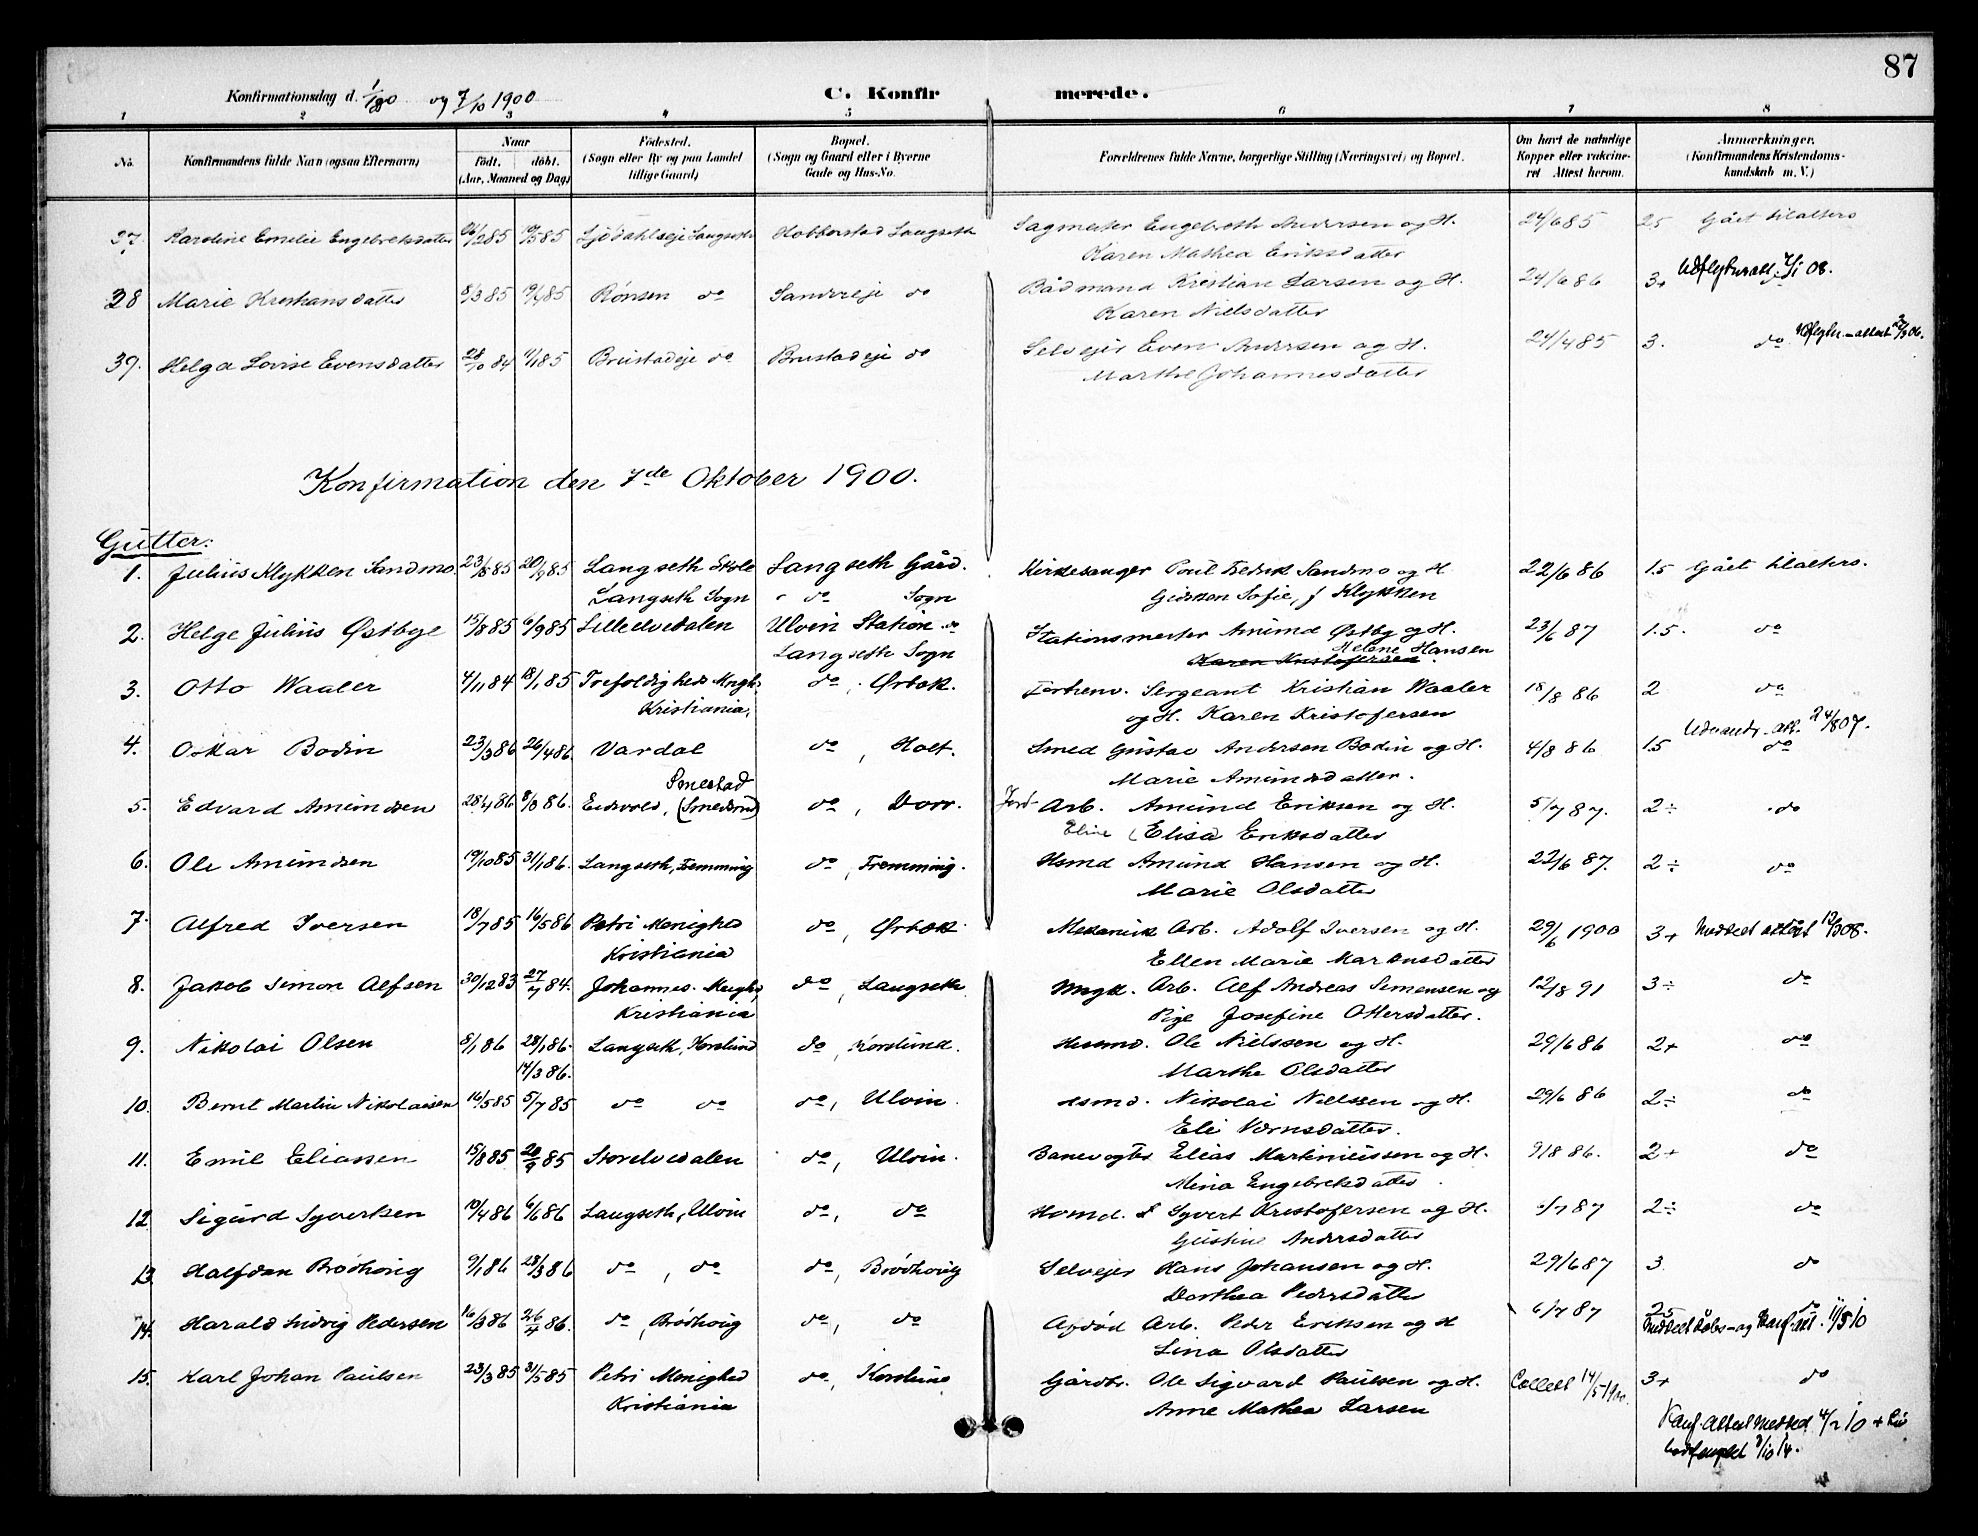 87
Konfirmationsdag d. 1/7 1900 og 7/10 1900
C. Konfirmerede.
1 2 3 4 5 6 7 8
No. Konfirmandens fulde Navn (ogsaa Efternavn) Naar födt. döbt. (Aar, Maaned og Dag) Födested. (Sogn eller By og paa Landet tillige Gaard) Bopæl. (Sogn og Gaard eller i Byerne Gade og Hus-No. Forældrenes fulde Navne, borgerlige Stilling (Næringsvei) og Bopæl. Om havt de naturlige Kopper eller vakcineret Attest herom. Anmærkninger. (Konfirmandens Kristendomskundskab m. V.)
37. Karoline Emelie Engebretsdatter Langseth Langseth Sagmester Engebreth Andersen og H. 24/6 85 25 Gået tilalters
Karen Mathea Eriksdatter
28 Marie Kristiansdatter 8/3 85 Rönsen do do Bådmand Kristian Larsen og H. 24/6 86 3+
Karen Nielsdatter
39. Helga Lovise Evensdatter 28/10 84 1/1 85 Brustadeje do Brustadeje do Selvejer Even Andersen og H. 24/4 85 3. do
Marthe Johannesdatter
Konfirmation den 7de Oktober 1900.
Gutter:
1. Julius Klykken Sandmo. 20/9 85 Langseth Skole Langseth Gård. Kirkesanger Poul Fredrik Sandmo og H 22/6 86 1.5 Gået tilalters.
Langseth Sogn " do Sogn Gidsken Sofie, f Klykken
2. Helge Julius Østbye 15/8 85 6/9 85 Lilleelvedalen Ulvin Station do Stationsmester Amund Østby og H. 23/6 87 1.5. do
Langseth Sogn Karen Kristofersen Helene Hansen
3. Otto Waaler 4/11 84 18/1 85 Trefoldigheds Mngh. do, Ørbæk. Forhenv. Sergeant Kristian Waaler 18/8 86 2 do
Kristiania, og H. Karen Kristofersen
4. Oskar Bodin 23/3 86 26/4 86 Vardal do, Holt. Smed Gustav Andersen Bodin og H. 4/8 86 1.5 do Udvandr. att. 24/8 07.
Marie Amundsdatter.
5. Edvard Amundsen 28/4 86 Eidsvold, (Smedsrud) Smestad do, Dorr. Jord- Arb. Amund Eriksen og H. 5/7 87. 2÷ do
Eline (Elisa Eriksdatter
6. Ole Amundsen 19/10 85 31/1 86. Langseth, Fremming do, Fremming. Hsmd Amund Hansen og H. 22/6 87. 2÷ do
Marie Olsdatter
7. Alfred Iversen 18/7 85 16/5 86 Petri Menighed do, Ørbæk. Mekanisk Arb. Adolf Iversen og H. 29/6 1900 3+
Kristiania Ellen Marie Martinsdatter
8. Jakob Simon Alfsen 30/12 83 27/7 84. Johannes. Mnghd, do, Langseth. Ungk. Arb. Alf Andreas Simensen og 12/8 91 3÷ do
Kristiania Pige Josefine Ottersdatter.
9. Nikolai Olsen 8/1 86 28/1 86. Langseth, Korslund do, Korslund. Husmd. Ole Nielssen og H. 29/6 86 2+ do
14/3 86. Marthe Olsdatter
10. Bernt Martin Nikolaisen 16/5 85 5/7 85 do do do, Ulvin. Hsmd. Nikolai Nielssen og H. 29/6 86 2÷ do
Eli Værnsdatter.
11. Emil Eliassen 15/8 85 20/9 85 Storelvedalen do, Ulvin. Banevogter Elias Martiniussen og H. 9/8 86. 2+ do
Mina Engebretsdatter.
12 Sigurd Syversen 10/4 86 6/6 86 Langseth, Ulvin do, do Husmd. Syvert Kristofersen og H. 6/7 87 2÷ do
Gustine Andersdatter
13. Halfdan Brodhovig 9/1 86 28/3 86 do, do do, Brodhovig Selvejer Hans Johansen og H. 29/6 87 3 do
Dorthea Pedersdatter
14. Harald Ludvig Pedersen 16/3 86 26/4 86. do, Brodhovig do, do Afdöd Arb. Peder Eriksen og H 6/7 87 25 do
Lina Olsdatter Meddelt Dåbs- og Konf. att. 11/5 10
15. Karl Johan Paulsen 23/3 85 31/5 85 Petri Menighed do, Korslund Gårdbr. Ole Sigvard Paulsen og H. Collett 14/5 1900. 3+ do
Kristiania Anne Mathea Larsen
Konf. Attest Meddelt 4/2 10